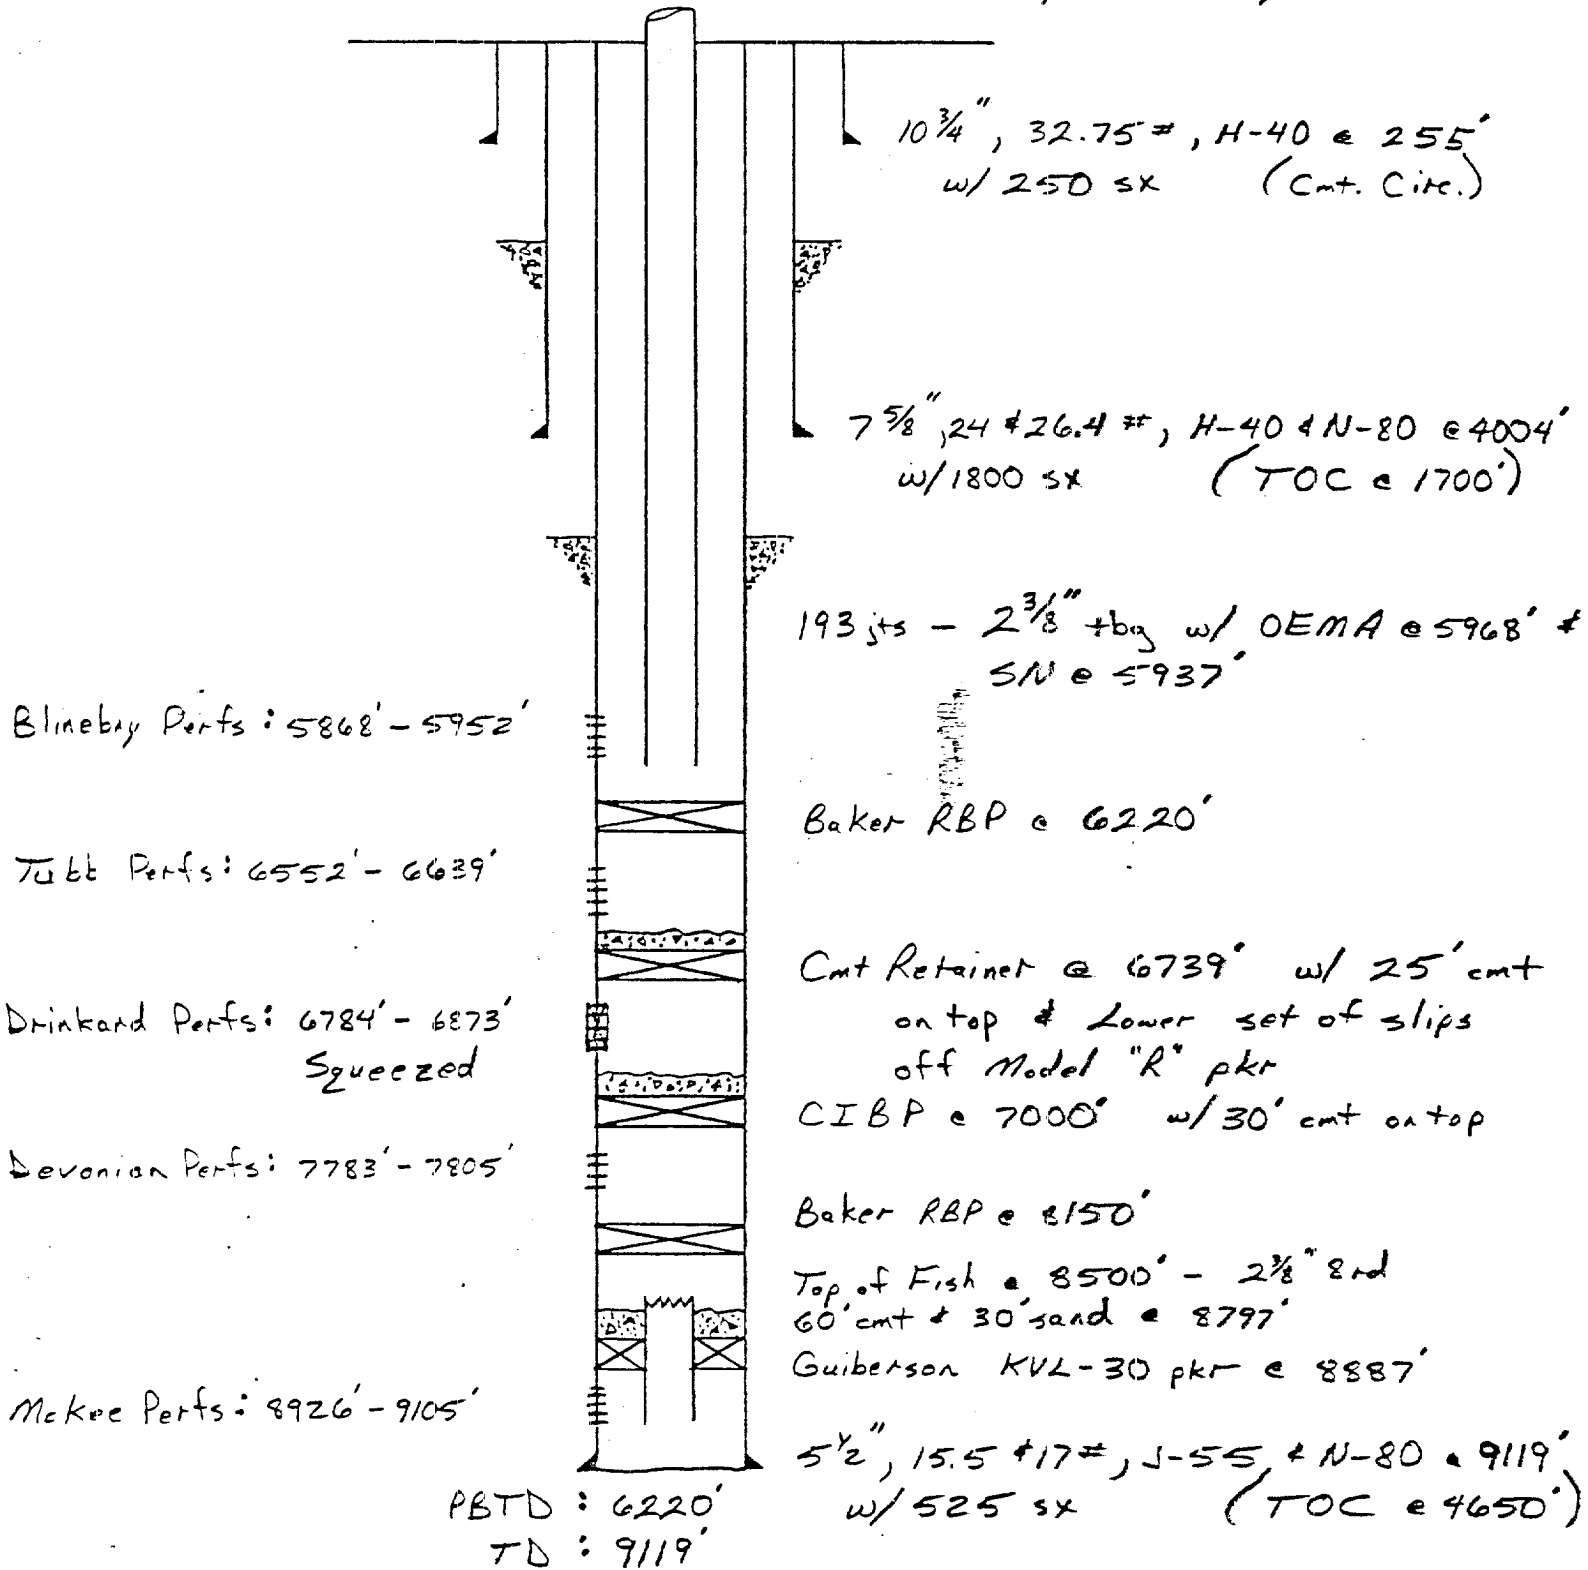 10 3/4", 32.75 #, H-40 @ 255'
w/ 250 sx (Cmt. Circ.)
7 5/8", 24 & 26.4 #, H-40 & N-80 @ 4004'
w/ 1800 sx (TOC @ 1700')
193 jts - 2 3/8" tbg w/ OEMA @ 5968' &
SN @ 5937'
Blinebry Perfs: 5868' - 5952'
Baker RBP @ 6220'
Tubb Perfs: 6552' - 6639'
Cmt Retainer @ 6739' w/ 25' cmt
on top & Lower set of slips
off Model "R" pkr
Drinkard Perfs: 6784' - 6873'
Squeezed
CIBP @ 7000' w/ 30' cmt on top
Devonian Perfs: 7783' - 7805'
Baker RBP @ 8150'
Top of Fish @ 8500' - 2 3/8" 8rd
60' cmt & 30' sand @ 8797'
Guiberson KVL-30 pkr @ 8887'
McKee Perfs: 8926' - 9105'
5 1/2", 15.5 & 17 #, J-55 & N-80 @ 9119'
w/ 525 sx (TOC @ 4650')
PBTD : 6220'
TD : 9119'